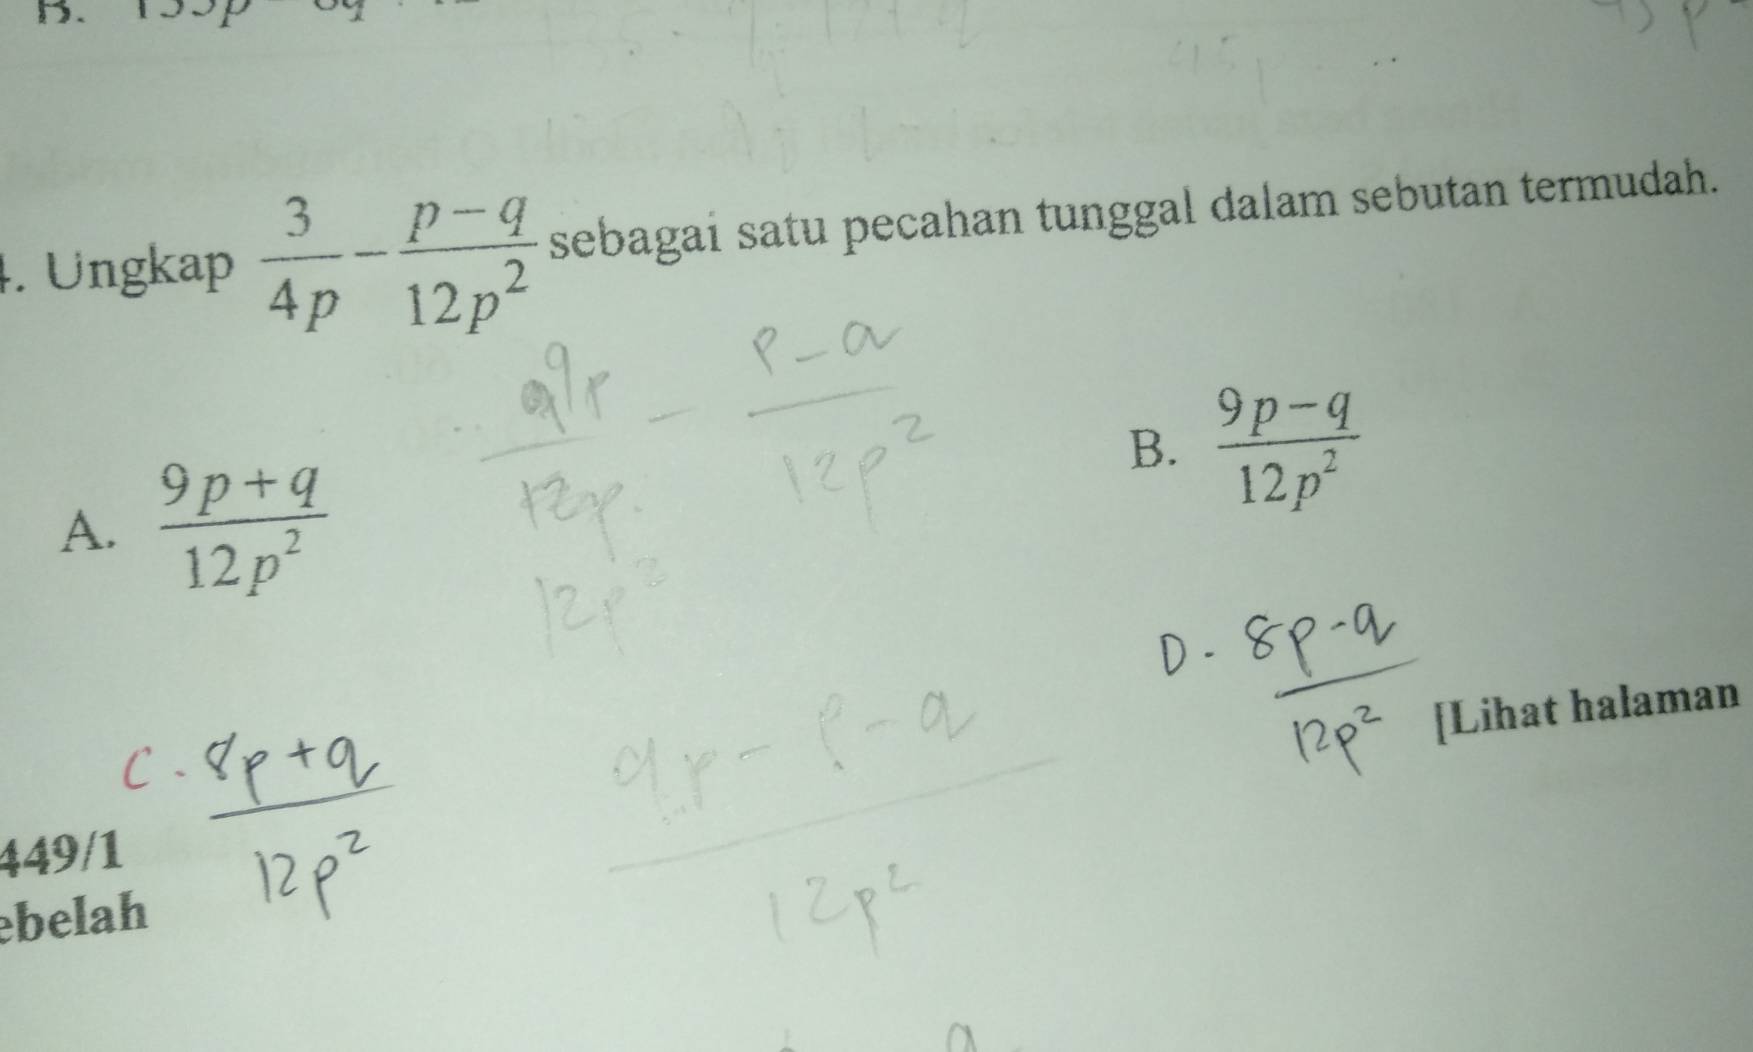 B. 135p
4. Ungkap 3/4p − p − q/12p² sebagai satu pecahan tunggal dalam sebutan termudah.
9p/12p − p − q/12p²
12p²
A. 9p + q/12p²
B. 9p − q/12p²
C. 8p + q/12p²
D. 8p - q/12p²
9p − p − q/12p²
[Lihat halaman
449/1
ebelah